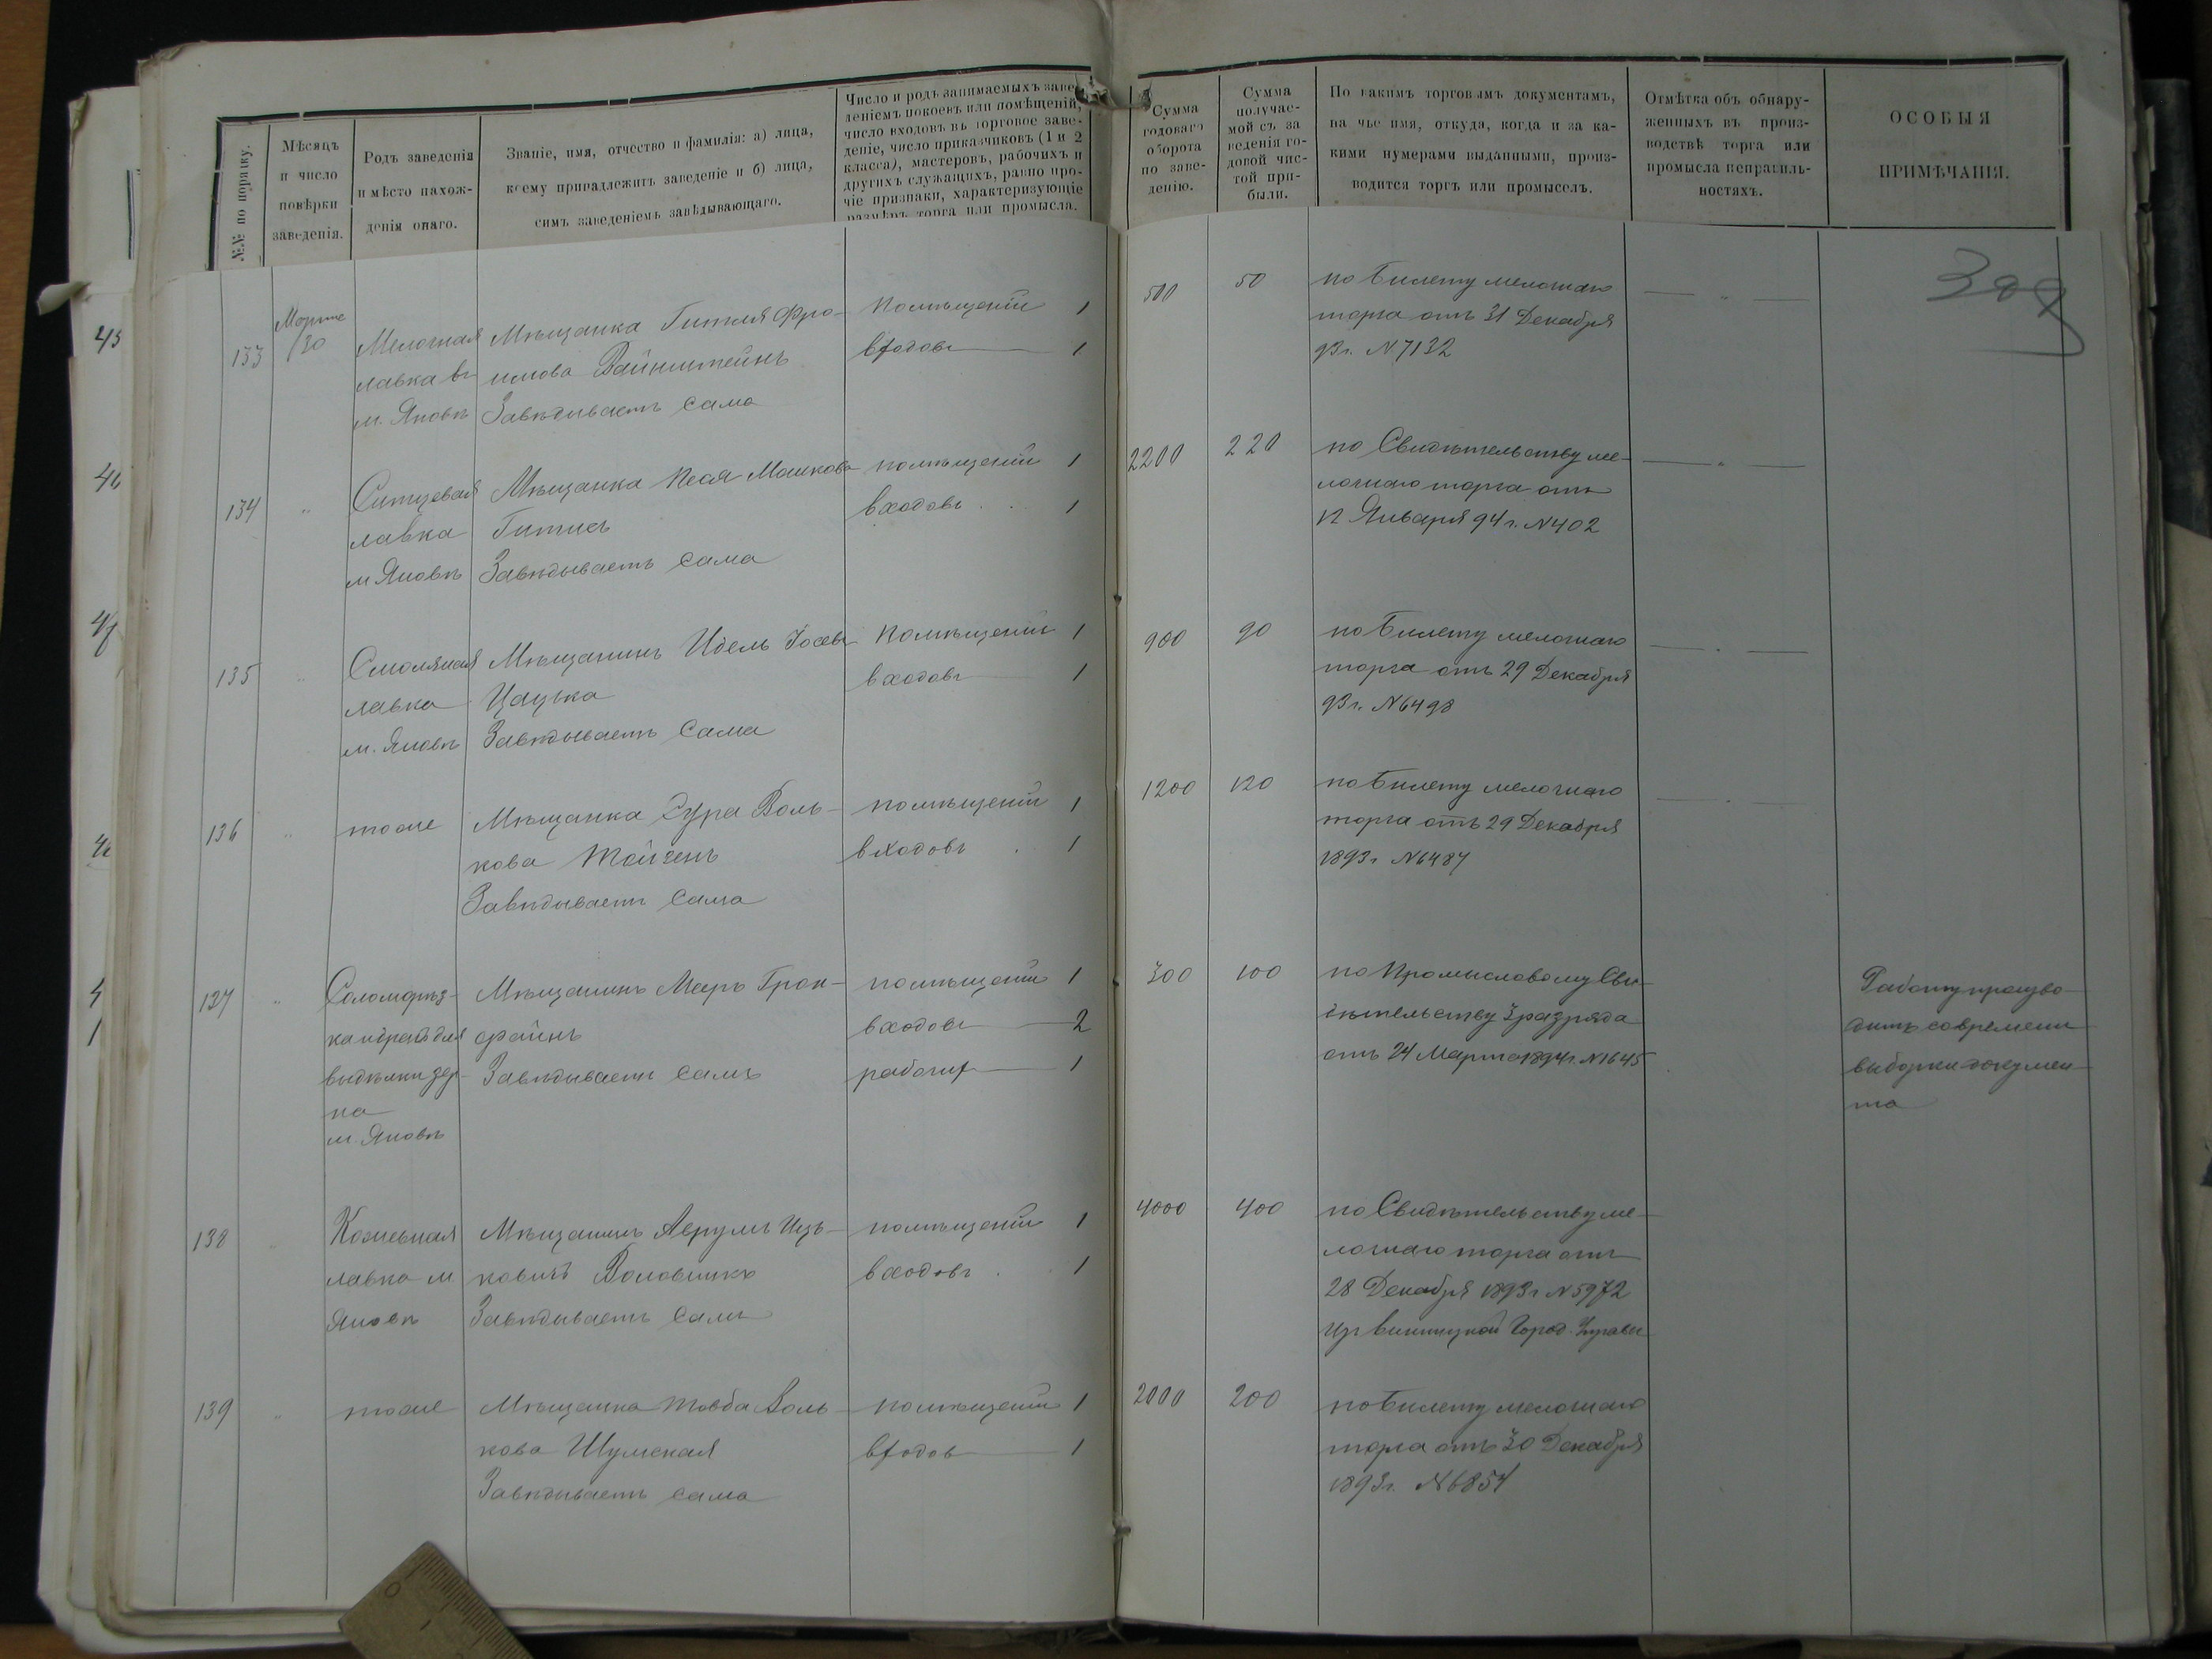 №№ по порядку.
Мѣсяцъ
и число
повѣрки
заведенія.
Родъ заведенія
и мѣсто нахож-
денія онаго.
Званіе, имя, отчество и фамилія: а) лица,
коему принадлежитъ заведеніе и б) лица,
симъ заведеніемъ завѣдывающаго.
Число и родъ занимаемыхъ заве-
деніемъ покоевъ или помѣщеній,
число входовъ въ торговое заве-
деніе, число приказчиковъ (1 и 2
класса), мастеровъ, рабочихъ и
другихъ служащихъ, равно про-
чіе признаки, характеризующіе
размѣръ торга или промысла.
Сумма
годоваго
оборота
по заве-
денію.
Сумма
получае-
мой съ за
веденія го-
довой чис-
той при-
были.
По какимъ торговымъ документамъ,
на чье имя, откуда, когда и за ка-
кими нумерами выданными, произ-
водится торгъ или промыселъ.
Отмѣтка объ обнару-
женныхъ въ произ-
водствѣ торга или
промысла неправиль-
ностяхъ.
ОСОБЫЯ
ПРИМѢЧАНІЯ.
133
Марта
20
Мелочная
лавка въ
м. Яновѣ
Мѣщанка Гитля Фро-
имова Вайнштейнъ
Завѣдываетъ сама
Помѣщеній 1
входовъ 1
500
50
по Билету мелочнаго
торга отъ 31 Декабря
93г. N 7132
134
"
Ситцевая
лавка
м Яновѣ
Мѣщанка Песя Мошкова
Гитисъ
Завѣдываетъ сама
помѣщеній 1
входовъ . . 1
2200
220
по Свидѣтельству ме-
лочнаго торга отъ
12 Января 94 г. N 402
135
"
Смоляная
лавка
м. Яновѣ
Мѣщанинъ Идель Іосевъ
Цацька
Завѣдываетъ Сама
Помѣщеній 1
входовъ 1
900
90
по Билету мелочнаго
торга отъ 29 Декабря
93г. N 6498
136
"
тоже
Мѣщанка Сура Воль-
кова
Завѣдываетъ Сама
помѣщеній 1
входовъ . 1
1200
120
по Билету мелочнаго
торга отъ 29 Декабря
1893г N 6487
137
"
Соломорѣз-
для
м. Яновѣ
Мѣщанинъ Меръ Грон-
файнъ
Завѣдываетъ самъ
помѣщеній 1
входовъ 2
рабочих 1
300
100
по Промысловому Сви-
дѣтельству 3 разряда
отъ 24 Марта 1894г. N 1645
Работу произво-
дитъ со времени
выборки докумен-
та
138
"
Кожевная
лавка м
Яновѣ
Мѣщанинъ Аврумъ Иць-
ковичъ
Завѣдываетъ Самъ
помѣщеній 1
входовъ . 1
4000
400
по Свидѣтельству ме-
лочнаго торга отъ
28 Декабря 1893г N 5972
Из Винницкой Город. Управы
139
"
тоже
Мѣщанка Товба Воль-
кова Шумская
Завѣдываетъ сама
помѣщеній 1
входов 1
2000
200
по Билету мелочнаго
торга отъ 30 Декабря
1893г. N 6854